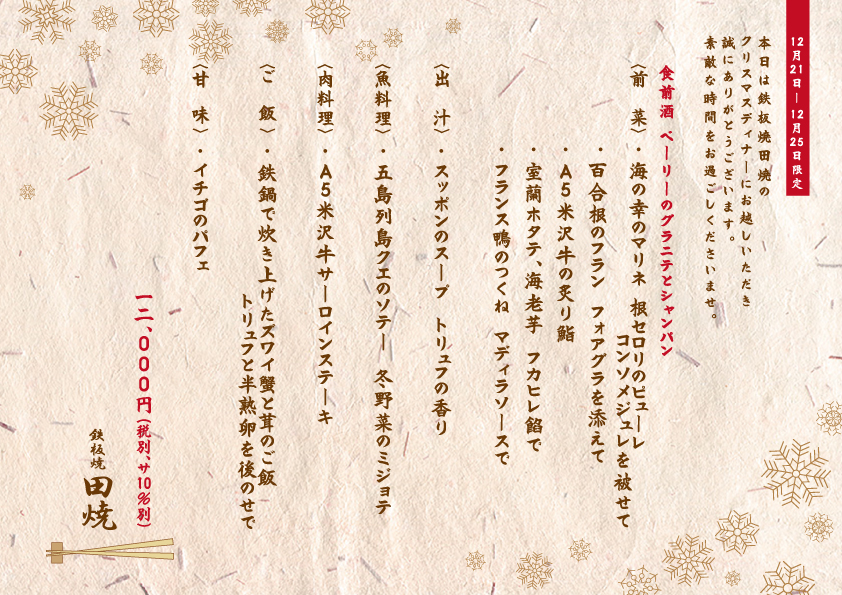 12月21日―12月25日限定
本日は鉄板焼田焼の
クリスマスディナーにお越しいただき
誠にありがとうございます。
素敵な時間をお過ごしくださいませ。
食前酒 ベーリーのグラニテとシャンパン
〈前菜〉・海の幸のマリネ 根セロリのピューレ
コンソメジュレを被せて
・百合根のフラン フォアグラを添えて
・A5米沢牛の炙り鮨
・室蘭ホタテ、海老芋 フカヒレ餡で
・フランス鴨のつくね マディラソースで
〈出汁〉・スッポンのスープ トリュフの香り
〈魚料理〉・五島列島クエのソテー 冬野菜のミジョテ
〈肉料理〉・A5米沢牛サーロインステーキ
〈ご飯〉・鉄鍋で炊き上げたズワイ蟹と茸のご飯
トリュフと半熟卵を後のせで
〈甘味〉・イチゴのパフェ
一二、000円(税別、サ10%別)
鉄板焼
田焼